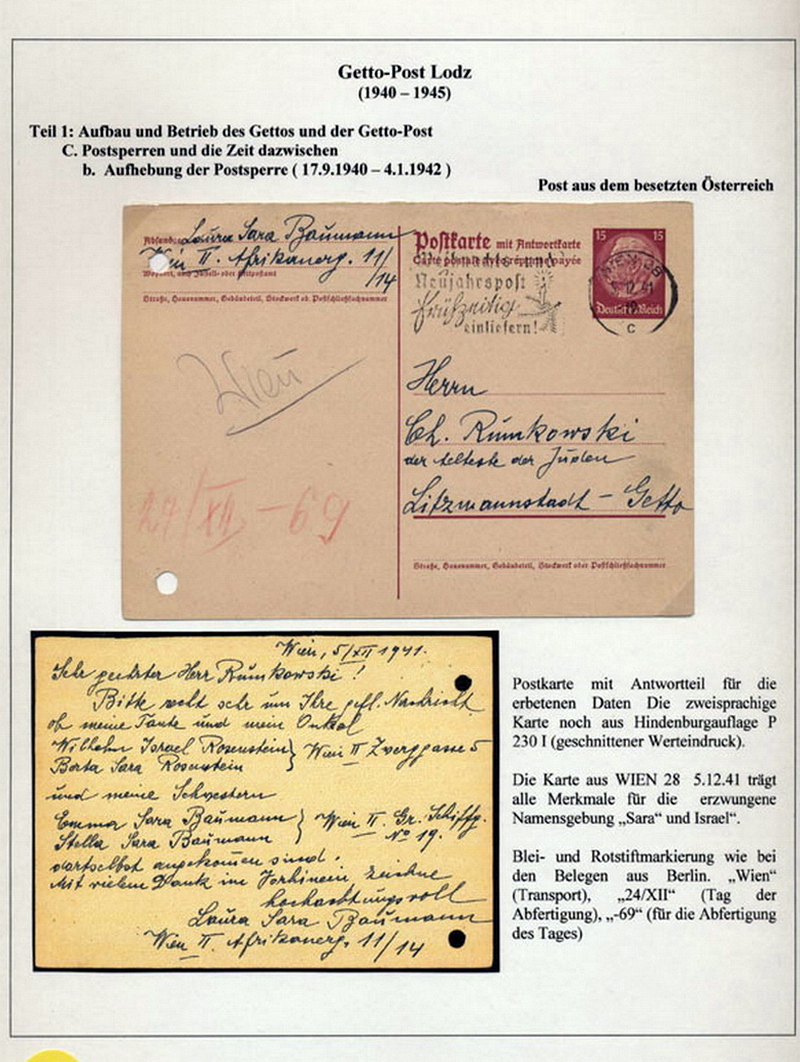 Getto-Post Lodz
(1940 – 1945)
Teil 1: Aufbau und Betrieb des Gettos und der Getto-Post
C. Postsperren und die Zeit dazwischen
b. Aufhebung der Postsperre ( 17.9.1940 – 4.1.1942 )
Post aus dem besetzten Österreich
Absender: Laura Sara Baumann
Wien II. Afrikanerg. 11/
/14
Wohnort, auch Zustell- oder Leitpostamt
Straße, Hausnummer, Gebäudeteil, Stockwerk od. Postschließfachnummer
Postkarte mit Antwortkarte
Carte postale avec réponse payée
Neujahrspost
frühzeitig
einliefern!
15 15
WIEN 28
41
Deutsches Reich
c
Wien
24/XII -69
Herrn
Ch. Rumkowski
der Aelteste der Juden
Litzmannstadt - Getto
Straße, Hausnummer, Gebäudeteil, Stockwerk oder Postschließfachnummer
Wien, 5/XII 1941.
Sehr geehrter Herr Rumkowski!
Bitte recht sehr um Ihre gefl. Nachricht
ob meine Tante und mein Onkel
Wilhelm Israel Rosenstein } Wien II Zwerggasse 5
Berta Sara Rosenstein
und meine Schwestern
Emma Sara Baumann } Wien II. Gr. Schiffg.
Stella Sara Baumann No 19.
dortselbst angekommen sind.
Mit vielem Dank im Vorhinein zeichne
hochachtungsvoll
Laura Sara Baumann
Wien II. Afrikanerg. 11/14
Postkarte mit Antwortteil für die
erbetenen Daten Die zweisprachige
Karte noch aus Hindenburgauflage P
230 I (geschnittener Werteindruck).
Die Karte aus WIEN 28 5.12.41 trägt
alle Merkmale für die erzwungene
Namensgebung „Sara“ und Israel“.
Blei- und Rotstiftmarkierung wie bei
den Belegen aus Berlin. „Wien“
(Transport), „24/XII“ (Tag der
Abfertigung), „-69“ (für die Abfertigung
des Tages)